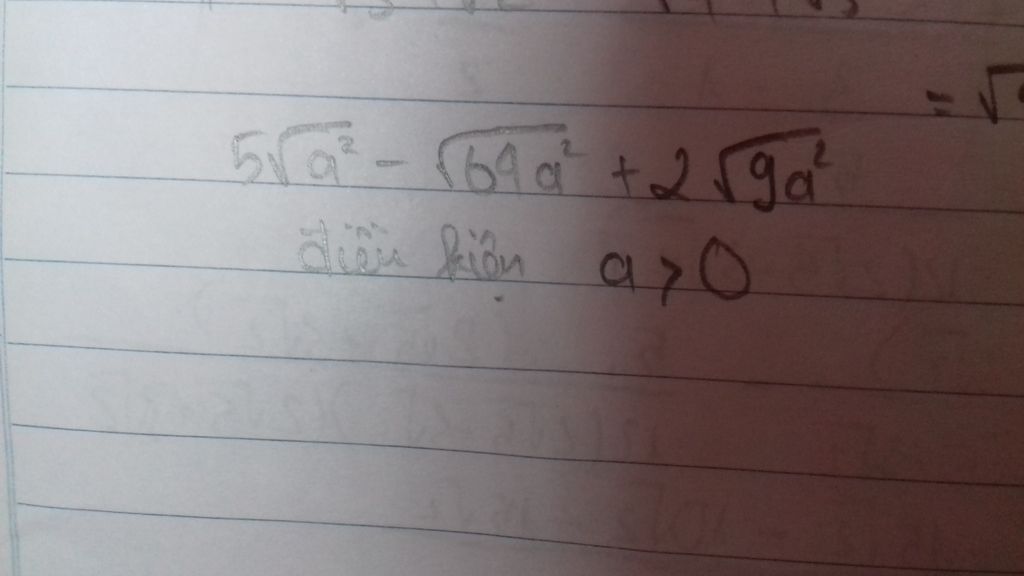 = √
5√a² - √64a² + 2√9a²
điều kiện a > 0